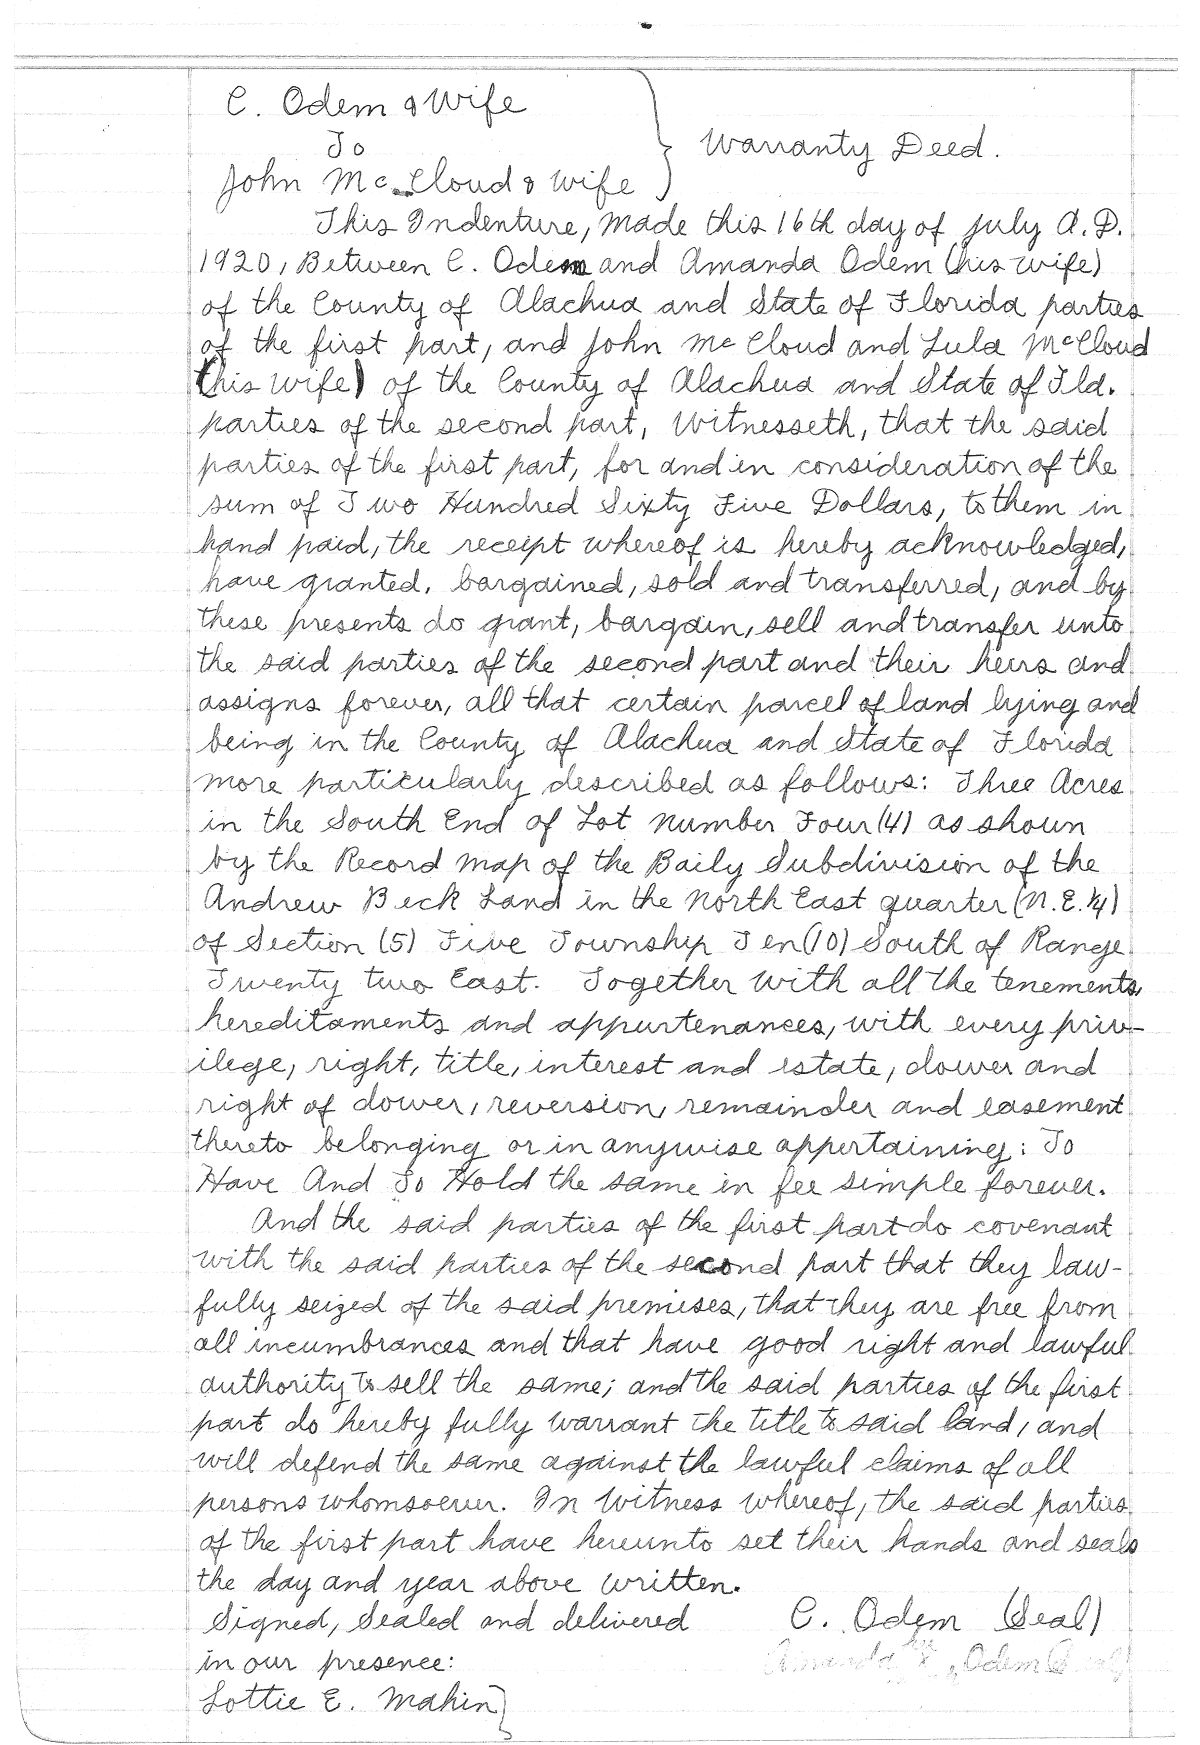 C. Odem & Wife
To
Warranty Deed.
John McCloud & Wife
This Indenture, Made this 16th day of July A.D.
1920, Between C. Odem and Amanda Odem (his wife)
of the County of Alachua and State of Florida parties
of the first part, and John McCloud and Lula McCloud
(his wife) of the County of Alachua and State of Fla.
parties of the second part, Witnesseth, that the said
parties of the first part, for and in consideration of the
sum of Two Hundred Sixty Five Dollars, to them in
hand paid, the receipt whereof is hereby acknowledged,
have granted, bargained, sold and transferred, and by
these presents do grant, bargain, sell and transfer unto
the said parties of the second part and their heirs and
assigns forever, all that certain parcel of land lying and
being in the County of Alachua and State of Florida
more particularly described as follows: Three Acres
in the South End of Lot Number Four (4) as shown
by the Record Map of the Baily Subdivision of the
Andrew Beck Land in the North East quarter (N.E.¼)
of Section (5) Five Township Ten (10) South of Range
Twenty two East. Together with all the tenements,
hereditaments and appurtenances, with every priv-
ilege, right, title, interest and estate, dower and
right of dower, reversion, remainder and easement
thereto belonging or in anywise appertaining: To
Have And To Hold the same in fee simple forever.
And the said parties of the first part do covenant
with the said parties of the second part that they law-
fully seized of the said premises, that they are free from
all incumbrances and that have good right and lawful
authority to sell the same; and the said parties of the first
part do hereby fully warrant the title to said land, and
will defend the same against the lawful claims of all
persons whomsoever. In Witness whereof, the said parties
of the first part have hereunto set their hands and seals
the day and year above written.
Signed, Sealed and delivered C. Odem (Seal)
in our presence: Amanda X Odem (Seal)
Lottie E. Mahin